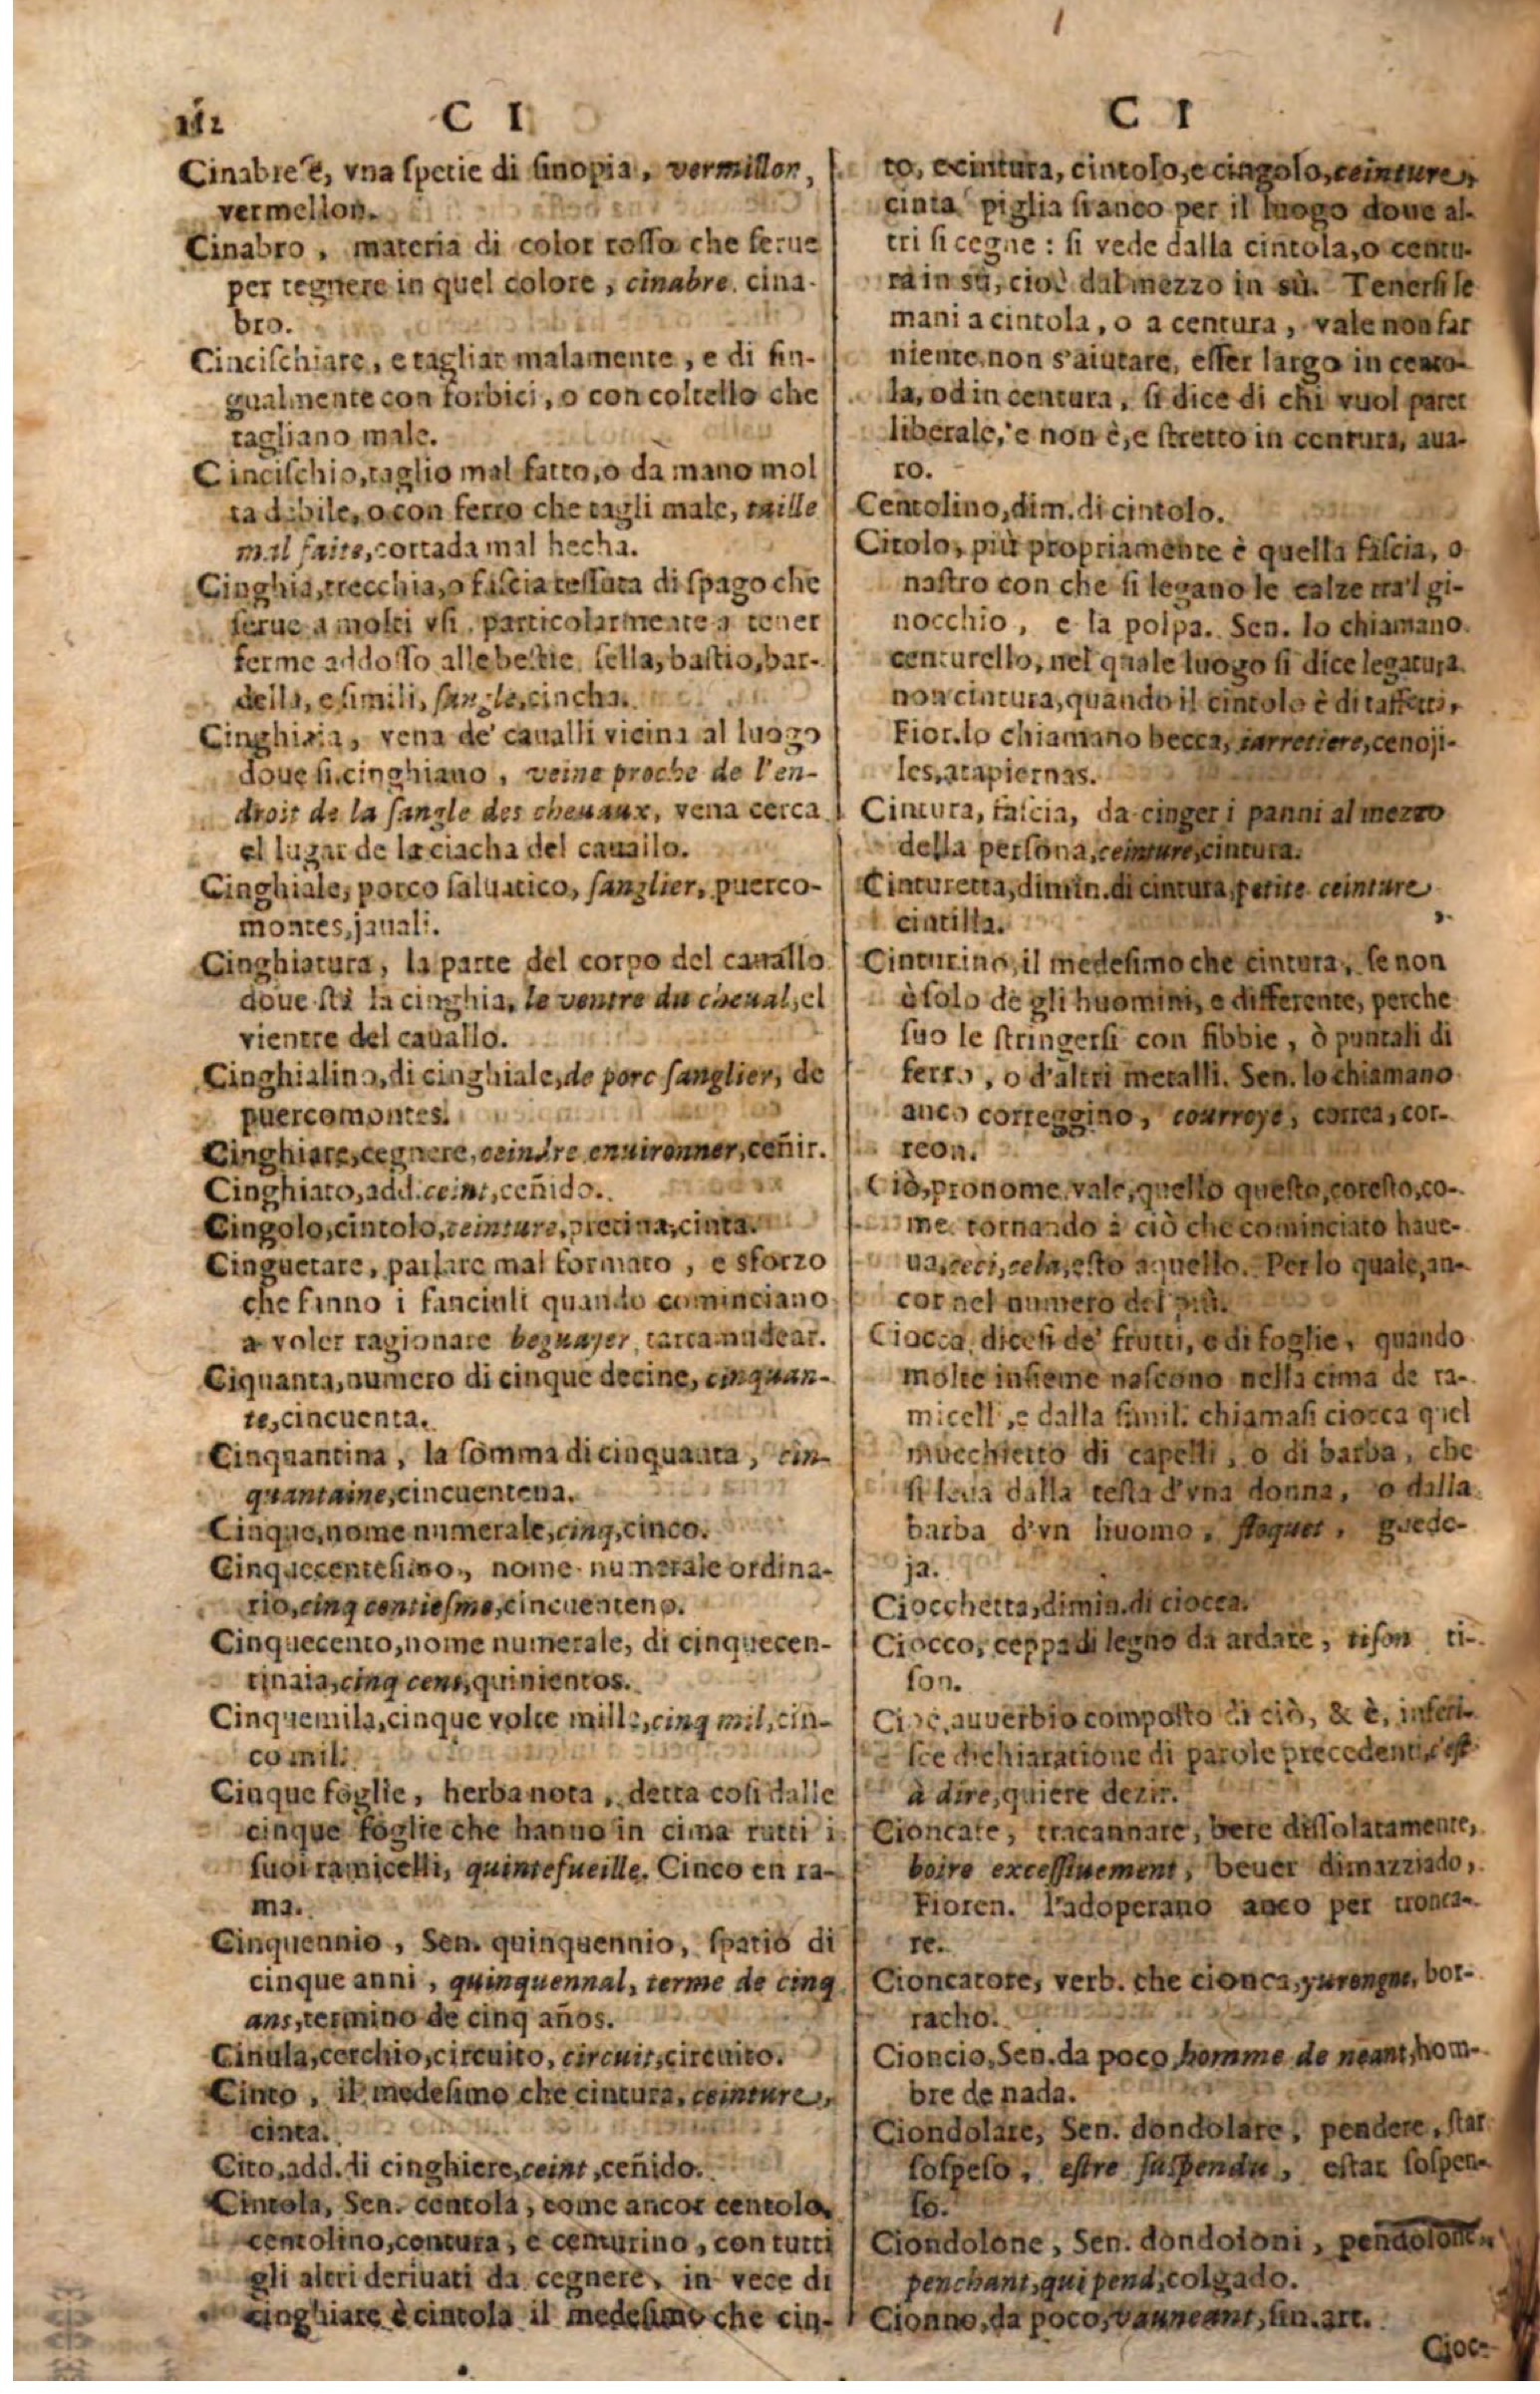 C I
C I
Cinabre è, vna ſpetie di ſinopia, vermillon,
vermellon.
Cinabro, materia di color roſſo che ſerue
per tegnere in quel colore, cinabre. cina-
bro.
Cinciſchiare, e tagliar malamente, e di ſin-
gualmente con forbici, o con coltello che
tagliano male.
Cinciſchio, taglio mal fatto, o da mano mol
ta debile, o con ferro che tagli male, taille
mal faite, cortada mal hecha.
Cinghia, trecchia, o faſcia teſſuta di ſpago che
ſerue a molti vſi, particolarmente a tener
ferme addoſſo alle beſtie ſella, baſtio, bar-
della, e ſimili, ſangle, cincha.
Cinghiaia, vena de' caualli vicina al luogo
doue ſi cinghiano, veine proche de l'en-
droit de la ſangle des cheuaux, vena cerca
el lugar de la ciacha del cauallo.
Cinghiale, porco ſaluatico, ſanglier, puerco-
montes, jauali.
Cinghiatura, la parte del corpo del cauallo
doue ſta la cinghia, le ventre du cheual, el
vientre del cauallo.
Cinghialino, di cinghiale, de porc ſanglier, de
puercomontes.
Cinghiare, cegnere, ceindre enuironner, ceñir.
Cinghiato, add. ceint, ceñido.
Cingolo, cintolo, ceinture, pretina, cinta.
Cinguetare, parlare mal formato, e sforzo
che fanno i fanciuli quando cominciano
a voler ragionare beguayer, tartamudear.
Ciquanta, numero di cinque decine, cinquan-
te, cincuenta.
Cinquantina, la ſomma di cinquanta, cin-
quantaine, cincuentena.
Cinque, nome numerale, cinq, cinco.
Cinquecenteſimo, nome numerale ordina-
rio, cinq centieſme, cincuenteno.
Cinquecento, nome numerale, di cinquecen-
tinaia, cinq cent, quinientos.
Cinquemila, cinque volte mille, cinq mil, cin-
co mil.
Cinque foglie, herba nota, detta coſi dalle
cinque foglie che hanno in cima tutti i
ſuoi ramicelli, quintefueille. Cinco en ra-
ma.
Cinquennio, Sen. quinquennio, ſpatio di
cinque anni, quinquennal, terme de cinq
ans, termino de cinq años.
Cinula, cerchio, circuito, circuit, circuito.
Cinto, il medeſimo che cintura, ceinture,
cinta.
Cito, add. di cinghiere, ceint, ceñido.
Cintola, Sen. centola, come ancor centolo,
centolino, contura, e centurino, con tutti
gli altri deriuati da cegnere, in vece di
cinghiare è cintola il medeſimo che cin-
to, e cintura, cintolo, e cingolo, ceinture,
cinta piglia ſianco per il luogo doue al-
tri ſi cegne: ſi vede dalla cintola, o centu-
ra in sù, cioè dal mezzo in sù. Tenerſi le
mani a cintola, o a centura, vale non far
niente non s'aiutare, eſſer largo in cento-
la, od in centura, ſi dice di chi vuol parer
liberale, e non è, e ſtretto in centura, aua-
ro.
Centolino, dim. di cintolo.
Citolo, più propriamente è quella faſcia, o
naſtro con che ſi legano le calze tra'l gi-
nocchio, e la polpa. Sen. lo chiamano
centurello, nel quale luogo ſi dice legatura
non cintura, quando il cintolo è di taffettì,
Fior. lo chiamano becca, iarretiere, cenoji-
les, atapiernas.
Cintura, faſcia, da cinger i panni al mezzo
della perſona, ceinture, cintura.
Cinturetta, dimin. di cintura, petite ceinture
cintilla.
Cinturino, il medeſimo che cintura, ſe non
è ſolo de gli huomini, e differente, perche
ſuo le ſtringerſi con fibbie, ò puntali di
ferro, o d'altri metalli. Sen. lo chiamano
anco correggino, courroye, correa, cor-
reon.
Ciò, pronome vale, quello queſto, coteſto, co-
me tornando à ciò che cominciato haue-
ua, ceci, cela, eſto aquello. Per lo quale, an-
cor nel numero del più.
Ciocca, diceſi de' frutti, e di foglie, quando
molte inſieme naſcono nella cima de ra-
micelli, e dalla ſimil. chiamaſi ciocca quel
mucchietto di capelli, o di barba, che
ſi leua dalla teſta d'vna donna, o dalla
barba d'vn huomo, floquet, guede-
ja.
Ciocchetta, dimin. di ciocca.
Ciocco, ceppa di legno da ardare, tiſon ti-
ſon.
Cioè, auuerbio compoſto di ciò, & è, inferi-
ſce dichiaratione di parole precedenti, c'eſt
à dire, quiere dezir.
Cioncate, tracannare, bere diſſolatamente,
boire exceſſiuement, beuer dimazziado,
Fioren. l'adoperano anco per tronca-
re.
Cioncatore, verb. che cionca, yurongne, bor-
racho.
Cioncio, Sen. da poco, homme de neant, hom-
bre de nada.
Ciondolare, Sen. dondolare, pendere, ſtar
ſoſpeſo, eſtre ſuſpendu, eſtar ſoſpen-
ſo.
Ciondolone, Sen. dondoloni, pendolone,
penchant, qui pend, colgado.
Cionno, da poco, vauneant, ſin. art.
Cioc-